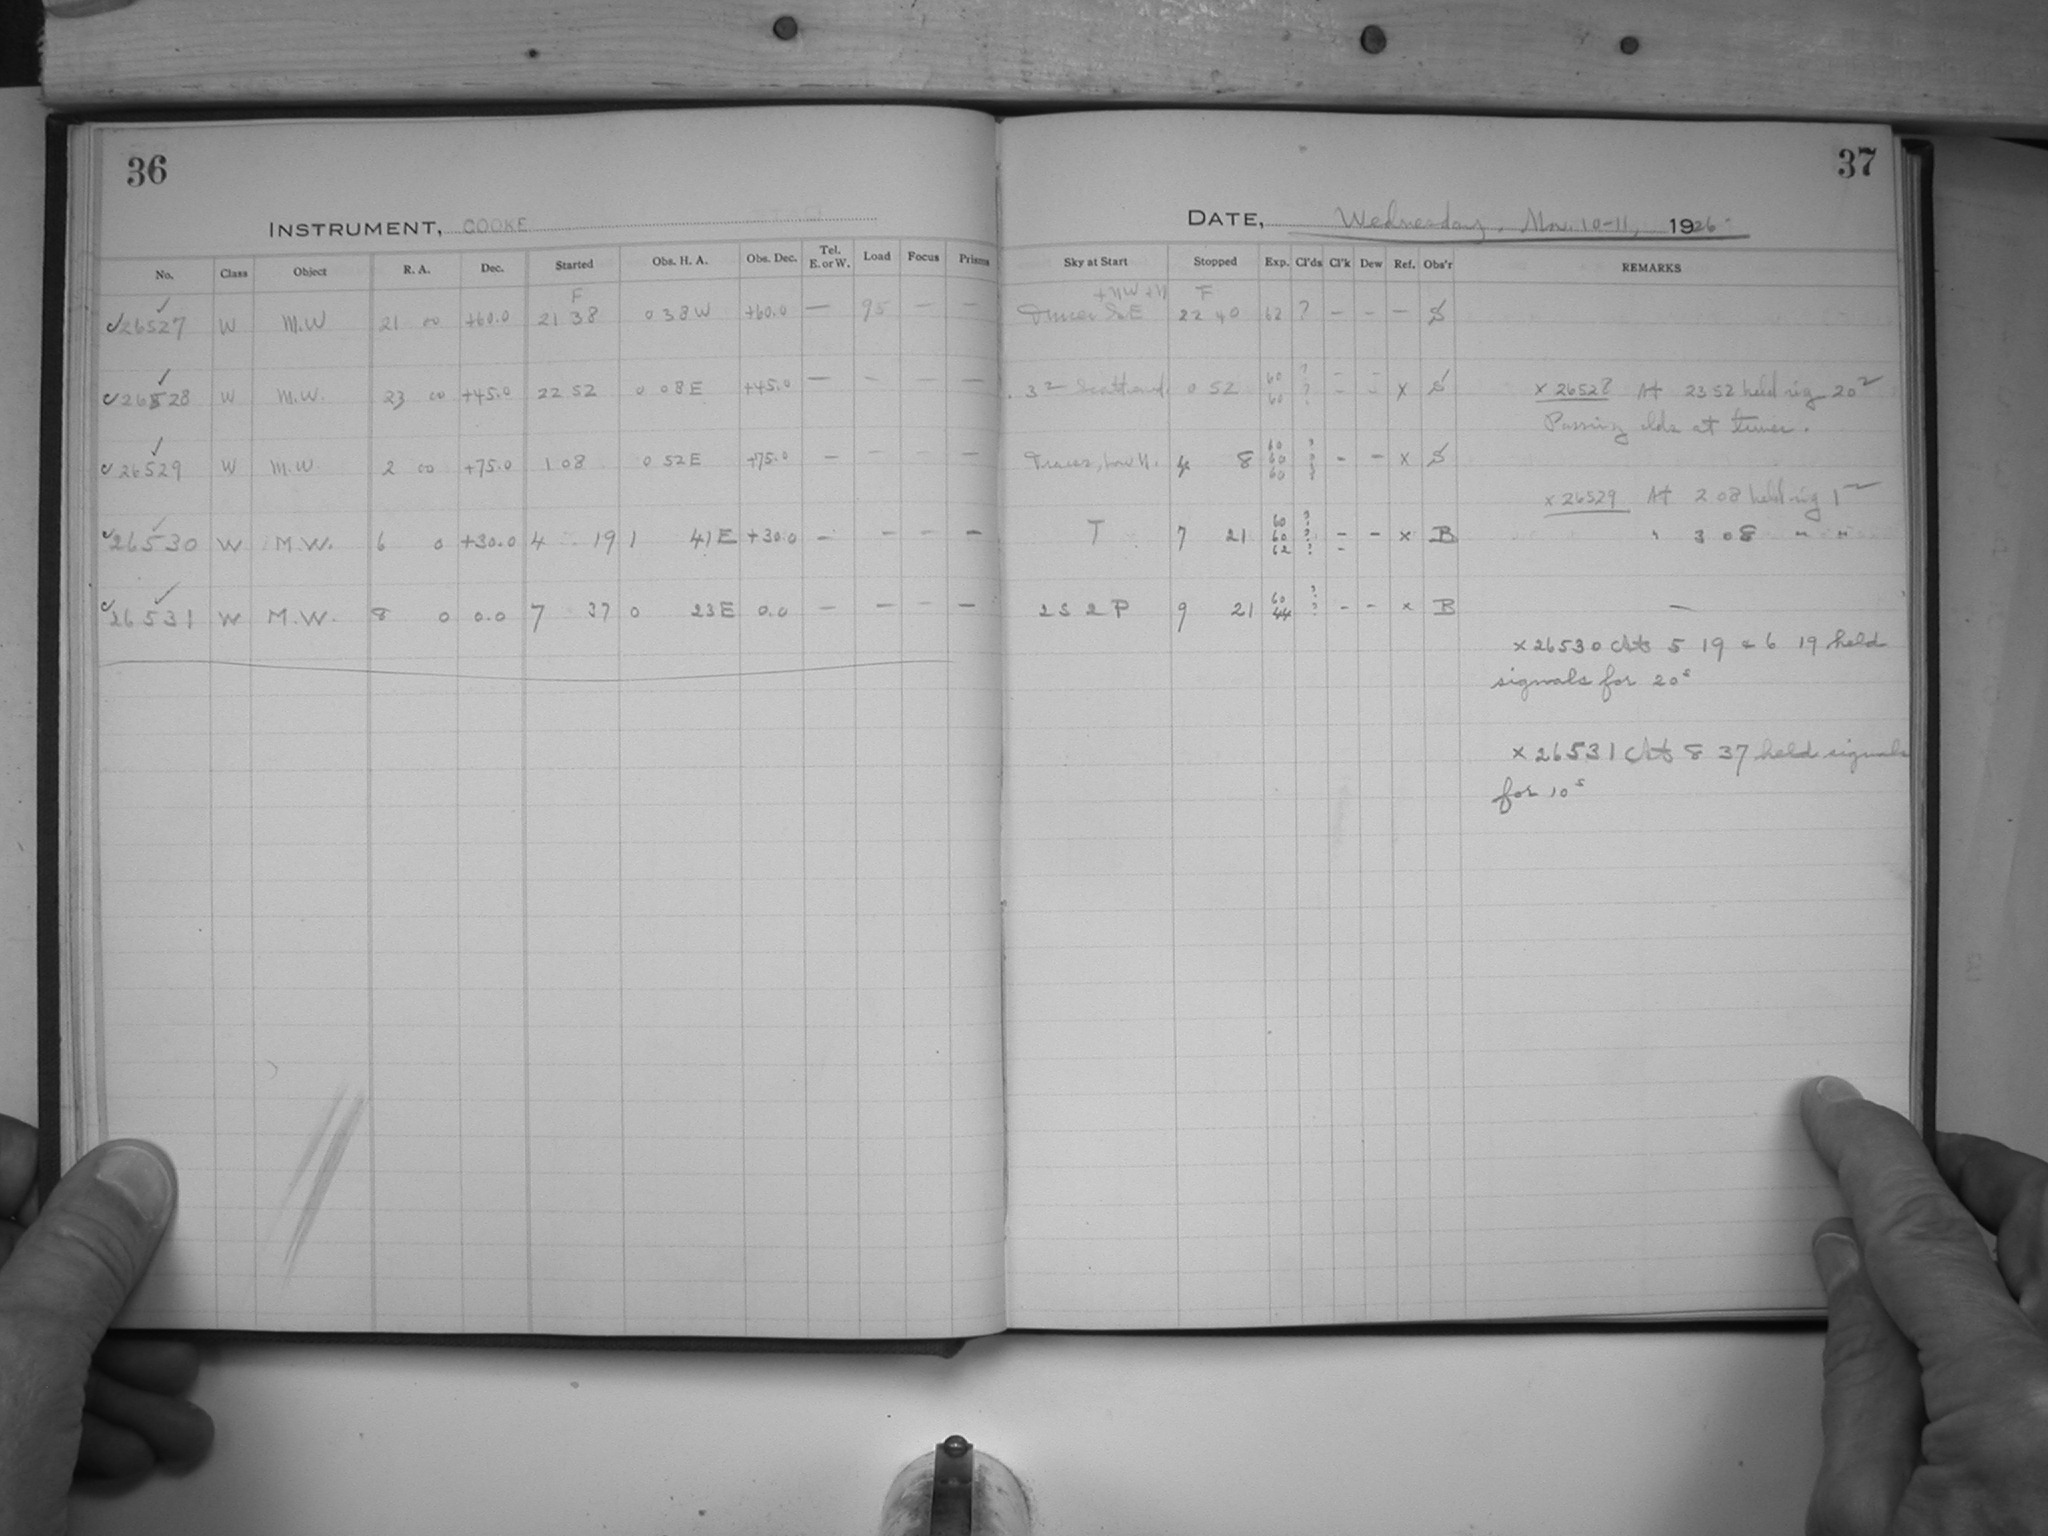 36
INSTRUMENT, COOKE
No. Class Object R. A. Dec. Started Obs. H. A. Obs. Dec. Tel. E. or W. Load Focus Prisms
F
26527 W M.W 21 00 +60.0 21 38 0 38 W +60.0 — 95 — —
26528 W M.W. 23 00 +45.0 22 52 0 08 E +45.0 — - — —
26529 W M.W. 2 00 +75.0 1 08 0 52 E +75.0 — — — —
26530 W M.W. 6 0 +30.0 4 19 1 41 E +30.0 — — — —
26531 W M.W. 8 0 0.0 7 37 0 23 E 0.0 — — — —
37
DATE, Wednesday, Nov. 10-11, 1926
Sky at Start Stopped Exp. Cl'ds Cl'k Dew Ref. Obs'r REMARKS
+ NW + N F
S E 22 40 62 ? - - - S
0 52 60 60 ? ? - - - - x S
4 8 60 60 60 ? ? ? - - x S
T 7 21 60 60 62 ? ? ? - - - x B
2 S 2 P 9 21 60 44 ? ? - - x B
x 26528 At 23 52 held sig 20
Passing clds at times.
x 26529 At 2 08 held sig 1
" 3 08 " "
—
x 26530 At 5 19 & 6 19 held
signals for 20s
x 26531 At 8 37 held signals
for 10s